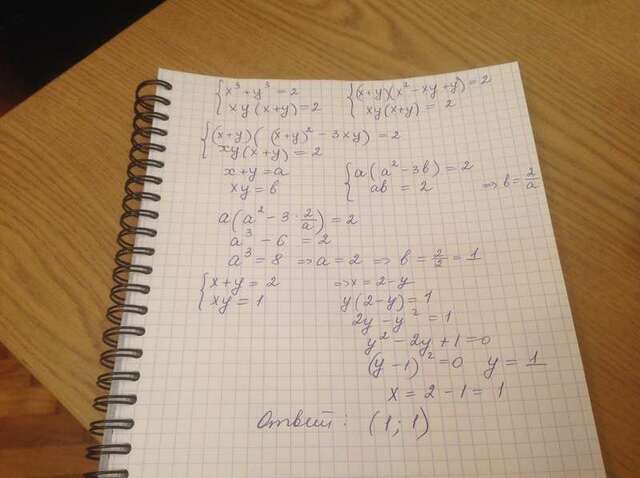 {x³ + y³ = 2 {(x+y)(x² - xy + y²) = 2
xy(x+y) = 2 xy(x+y) = 2
{(x+y)((x+y)² - 3xy) = 2
xy(x+y) = 2
x+y = a {a(a² - 3b) = 2
xy = b ab = 2 ⇒ b = 2/a
a(a² - 3·2/a) = 2
a³ - 6 = 2
a³ = 8 ⇒ a = 2 ⇒ b = 2/2 = 1
{x+y = 2 ⇒ x = 2-y
xy = 1 y(2-y) = 1
2y - y² = 1
y² - 2y + 1 = 0
(y-1)² = 0 y = 1
x = 2 - 1 = 1
Ответ: (1; 1)